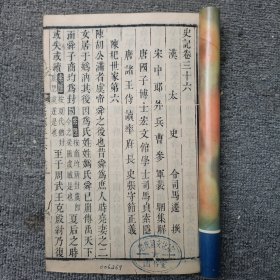 史記卷三十六
漢太史令司馬遷撰
宋中郎外兵曹參軍裴駰集解
唐國子博士弘文館學士司馬貞索隱
唐諸王侍讀率府長史張守節正義
陳杞世家第六
陳胡公滿者虞帝舜之後也昔舜為庶人時堯妻之二
女居于媯汭其後因為氏姓姓媯氏舜已崩傳禹天下
而舜子商均為封國
夏后之時
或失或續
至于周武王克殷紂乃復